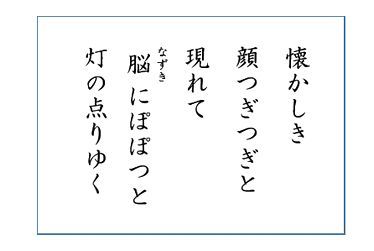 懐かしき
顔つぎつぎと
現れて
脳にぽぽつと
灯の点りゆく
なずき